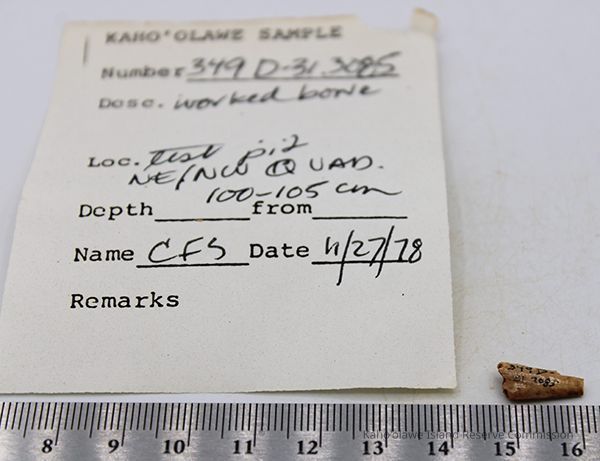 KAHO'OLAWE SAMPLE
Number 349 D-31.3085
Desc. worked bone
Loc. test pit
NE/NW QUAD.
100-105 cm
Depth from
Name CFS Date 11/27/78
Remarks
349 D-
31 3085
Kahoolawe Island Reserve Commission
8 9 10 11 12 13 14 15 16